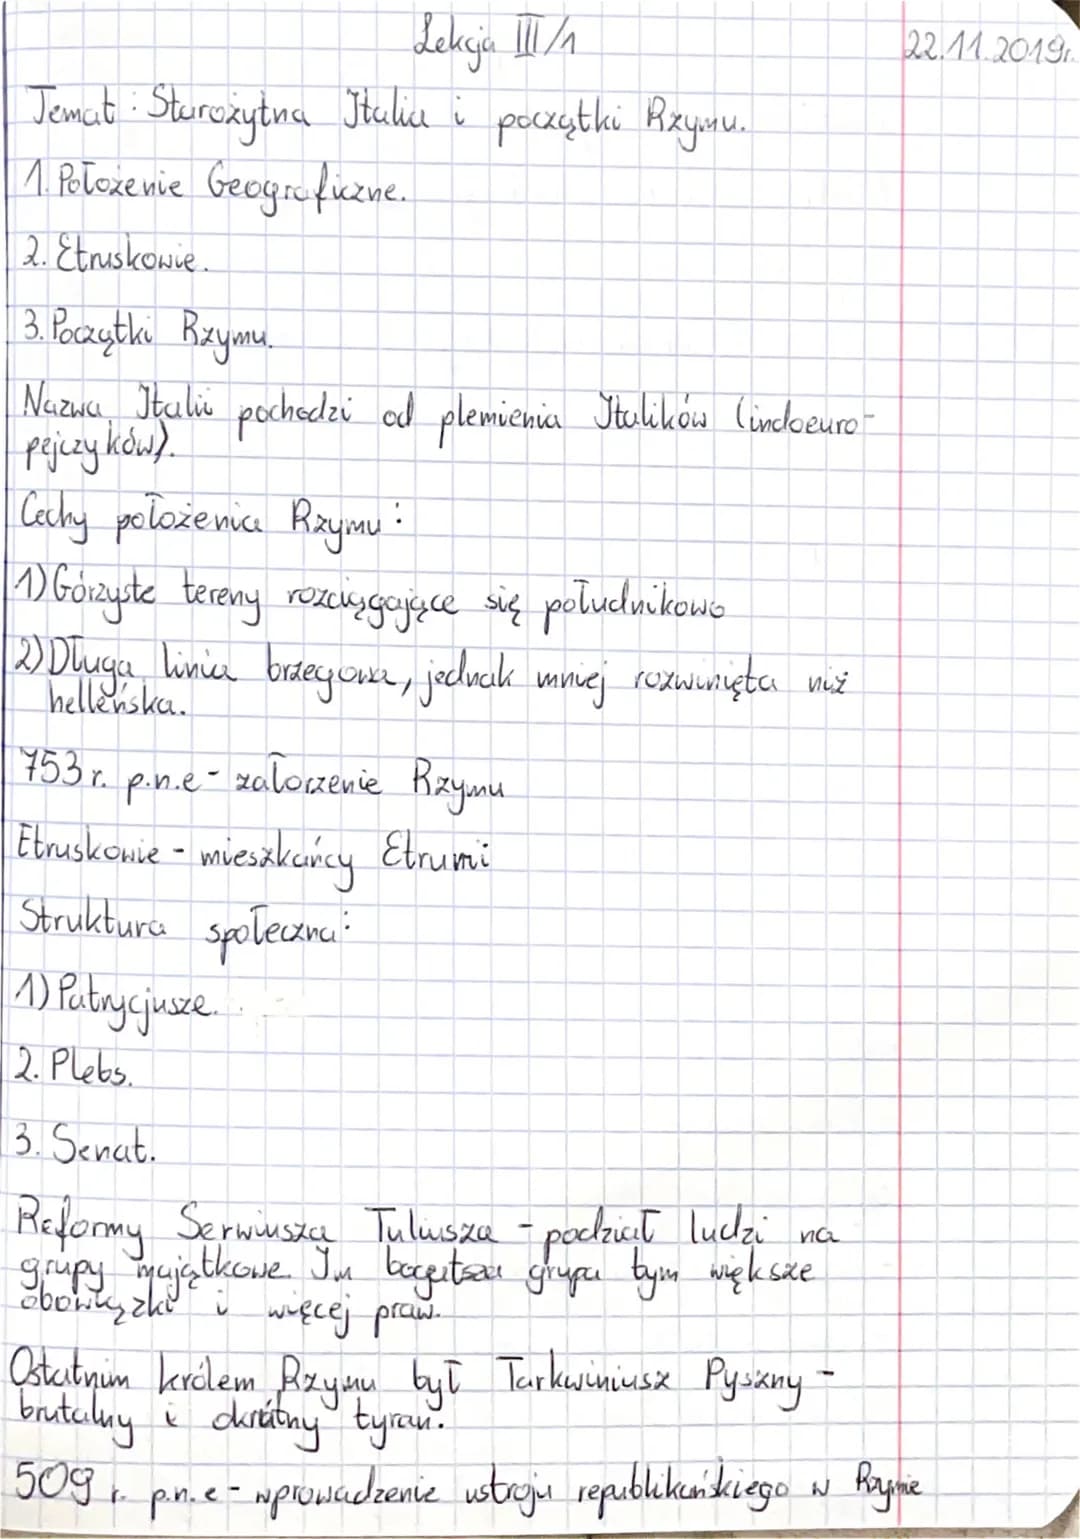 Lekcja III/1
22.11.2019r.
Temat: Starożytna Italia i początki Rzymu.
1. Położenie Geograficzne.
2. Etruskowie.
3. Początki Rzymu.
Nazwa Italii pochodzi od plemienia Italików (indoeuro-
pejczyków).
Cechy położenia Rzymu:
1) Górzyste tereny rozciągające się południkowo
2) Długa linia brzegowa, jednak mniej rozwinięta niż
helleńska.
753 r. p.n.e - założenie Rzymu
Etruskowie - mieszkańcy Etrurii
Struktura społeczna:
1) Patrycjusze.
2. Plebs.
3. Senat.
Reformy Serwiusza Tuliusza - podział ludzi na
grupy majątkowe. Im bogatsza grupa tym większe
obowiązki i więcej praw.
Ostatnim królem Rzymu był Tarkwiniusz Pyszny -
brutalny i okrutny tyran.
509 r. p.n.e - wprowadzenie ustroju republikańskiego w Rzymie